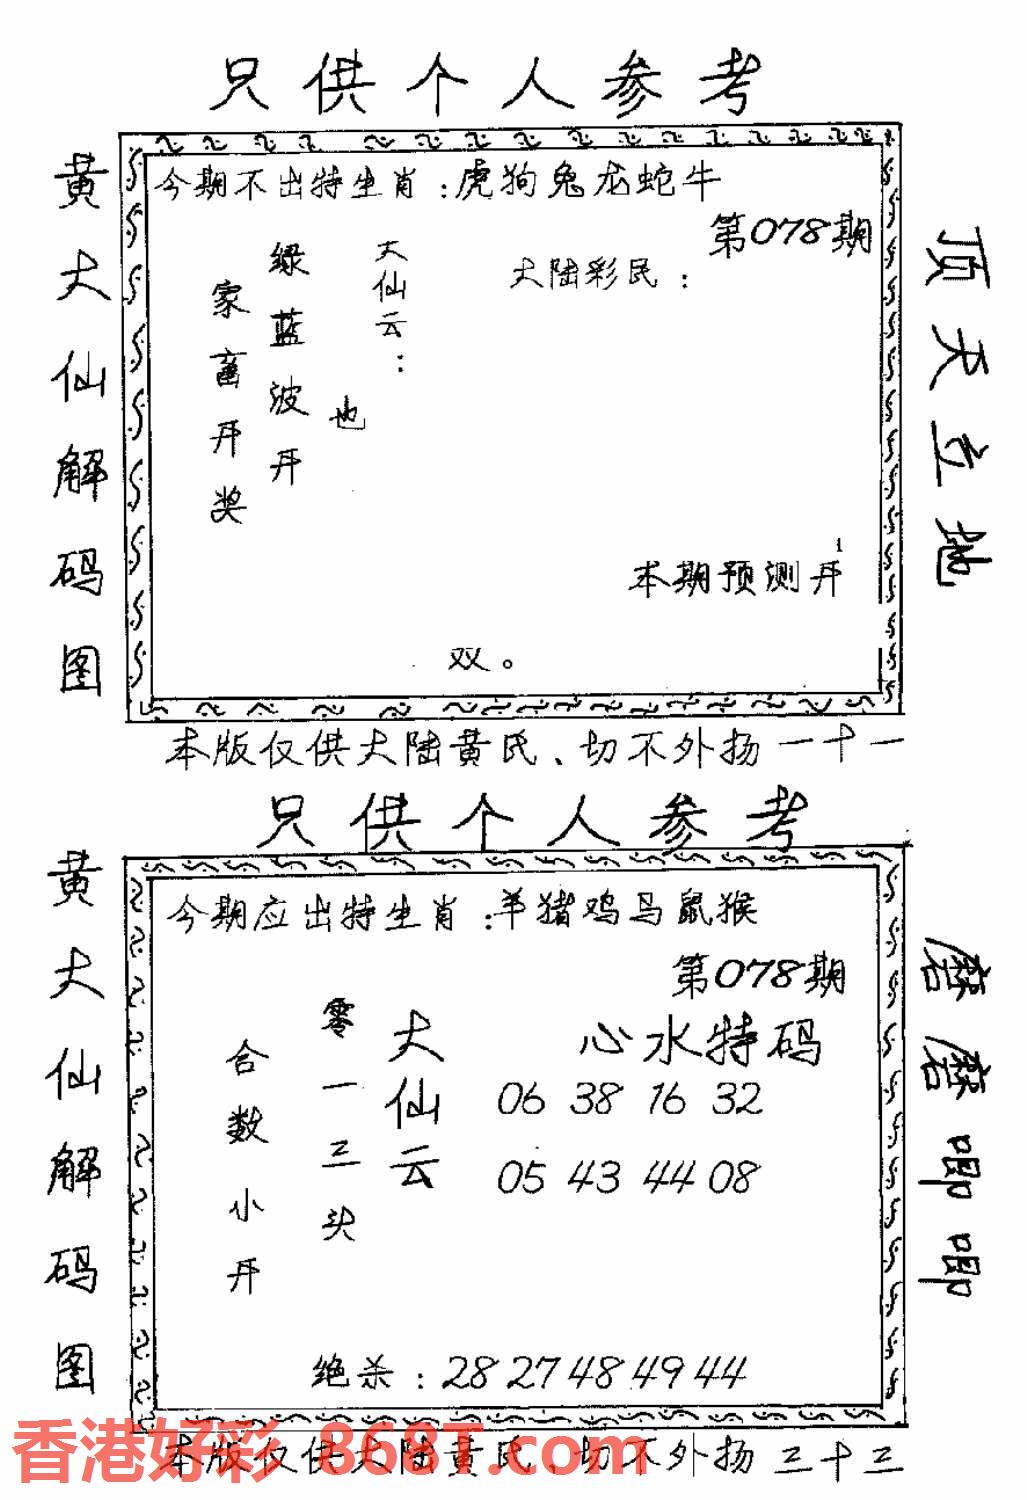 只供个人参考
黄大仙解码图
今期不出特生肖:虎狗兔龙蛇牛
第078期
大陆彩民:
大仙云:
绿蓝波开也
家畜开奖
本期预测开
双。
顶天立地
本版仅供大陆黄民、切不外扬一十一
只供个人参考
黄大仙解码图
今期应出特生肖:羊猪鸡马鼠猴
第078期
心水特码
06 38 16 32
05 43 44 08
大仙云
零一三头
合数小开
绝杀:28 27 48 49 44
磨磨唧唧
本版仅供大陆黄民、切不外扬三十三
香港好彩 868T.com